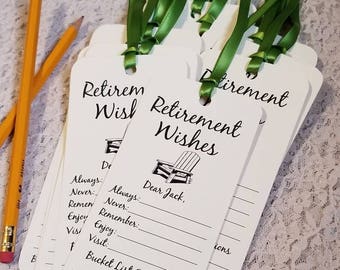 Retirement
Wishes
Dear Jack,
Always:
Never:
Remember:
Enjoy:
Visit:
Bucket List
Retirement
Wishes
Always:
Never:
Remember:
Enjoy:
Visit:
Bucket
Retirement